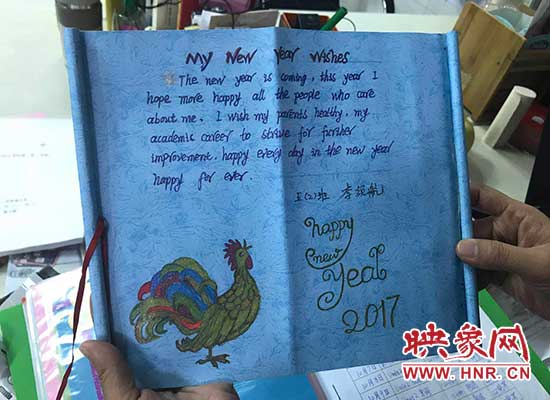 My New Year Wishes
The new year is coming, this year I
hope more happy all the people who care
about me. I wish my parents healthy, my
academic career to strive for further
improvement. happy every day in the new year
happy for ever.
五(2)班
happy
new
year
2017
映象网
WWW.HNR.CN